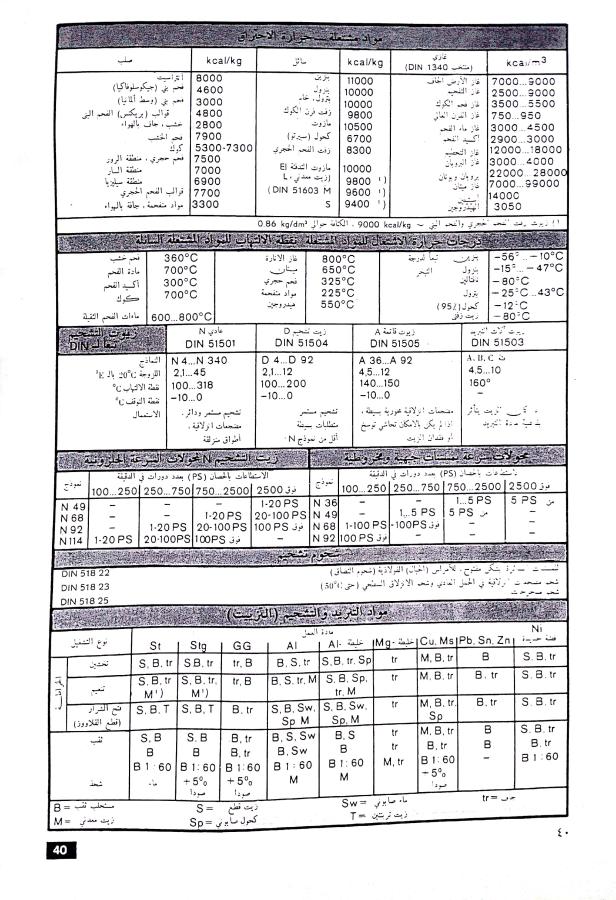 مواد مشتعلة - حرارة الاحتراق
صلب kcal/kg سائل kcal/kg غازي (منتخب DIN 1340) kcal/m³
انتراسيت 8000 بنزين 11000 غاز الأرض الجاف 7000...9000
فحم بني (جيكوسلوفاكيا) 4600 بنزول 10000 غاز التفحيم 2500...9000
فحم بني (وسط ألمانيا) 3000 بترول، خام 10000 غاز فحم الكوك 3500...5500
قوالب (بريكتس) الفحم البني 4800 زفت فرن الكوك 9800 غاز الفرن العالي 750...950
خشب، جاف بالهواء 2800 مازوت 10500 غاز ماء الفحم 3000...4500
كوك 7900 كحول (سبرتو) 6700 أكسيد الفحم 2900...3000
فحم حجري، منطقة الرور 5300-7300 زفت الفحم الحجري 8300 غاز التحطيم 12000...18000
7500 غاز البروبان 3000...4000
منطقة السار 7000 مازوت التدفئة El 10000 بروبان وبوتان 22000...28000
منطقة سيليزيا 6900 (زيت معدني) L 9800 ¹) غاز ميتان 7000...99000
قوالب الفحم الحجري 7700 (DIN 51603 M 9600 ¹) 14000
مواد متفحمة، جافة بالهواء 3300 S 9400 ¹) الهيدروجين 3050
١) زيوت زفت الفحم الحجري والفحم البني ~ 9000 kcal/kg، الكثافة حوالي 0.86 kg/dm³
درجات حرارة الاشتعال للمواد المشتعلة نقطة الالتهاب للمواد المشتعلة السائلة
فحم خشب 360°C غاز الانارة 800°C بنزين تبعاً لدرجة التبخر -56°...-10°C
مادة الفحم 700°C ميتان 650°C بنزول -15°...-47°C
أكسيد الفحم 300°C فحم حجري 325°C نافتالين -80°C
كوك 700°C مواد متفحمة 225°C بترول -25°C...43°C
هيدروجين 550°C كحول (95٪) -12°C
ماءات الفحم الثقيلة 600...800°C زيت زفتي -80°C
زيوت التشحيم تبعاً لـ DIN
عادي N DIN 51501 زيت تشحيم D DIN 51504 زيوت قائمة A DIN 51505 زيوت آلات التبريد DIN 51503
النماذج N 4...N 340 D 4...D 92 A 36...A 92 A, B, C
اللزوجة 20°C بالـ E° 2,1...45 2,1...12 4,5...12 4,5...10
نقطة الالتهاب C° 100...318 100...200 140...150 160°
نقطة التوقف C° -10...0 -10...0 -10...0
الاستعمال تشحيم مستمر ودائر، تشحيم مستمر مضجعات انزلاقية محورية بسيطة، الزيت يتأثر
مضجعات انزلاقية، متطلبات بسيطة اذا لم يكن بالامكان تحاشي توسيخ مادة التبريد
أطواق منزلقة أقل من نموذج N أو فقدان الزيت
زيت التشحيم N لمحولات السرعة الحلزونية
نموذج الاستطاعات بالحصان (PS) بعدد دورات في الدقيقة
100...250 250...750 750...2500 فوق 2500
N 49 – – – 1-20 PS
N 68 – – 1-20 PS 20-100 PS
N 92 – 1-20 PS 20-100 PS فوق 100 PS
N114 1-20 PS 20-100PS فوق 100PS –
محولات سرعة بمسننات جبهية ومخروطية
نموذج استطاعات بالحصان (PS) بعدد دورات في الدقيقة
100...250 250...750 750...2500 فوق 2500
N 36 – – 1...5 PS من 5 PS
N 49 – 1...5 PS من 5 PS –
N 68 1-100 PS فوق 100PS – –
N 92 فوق 100 PS – – –
شحوم تشحيم
DIN 518 22
DIN 518 23
DIN 518 25
مواد التبريد والتشحيم (التزييت)
نوع التشغيل مادة العمل
St Stg GG Al خليطة -Al خليطة -Mg Cu, Ms Pb, Sn, Zn Ni
تخشين S, B, tr S.B, tr tr, B B, S, tr S.B, tr, Sp tr M, B, tr B S. B. tr
تنعيم S, B, tr M¹) S, B, tr, M¹) tr, B B,S, tr, M S, B, Sp, tr, M tr M, B, tr B, tr S. B. tr
فتح الشرار (قطع القلاووز) S, B, T S, B, T B, tr S, B, Sw, Sp M S. B, Sw. Sp, M tr M, B, tr. Sp B, tr S. B. tr
ثقب S, B S, B B, tr B, S, Sw B, S tr M, B, tr B S. B. tr
B B B, tr B, Sw B tr B, tr B B, tr
شحذ B 1:60 B 1:60 B 1:60 B 1:60 B 1:60 M, tr B 1:60 – B 1:60
ماء +5% صودا +5% صودا M M +5% صودا
B = مستحلب ثقب S = زيت قطع Sw = ماء صابوني tr = جاف
M = زيت معدني Sp = كحول صابوني T = زيت تربنتين
٤٠
40